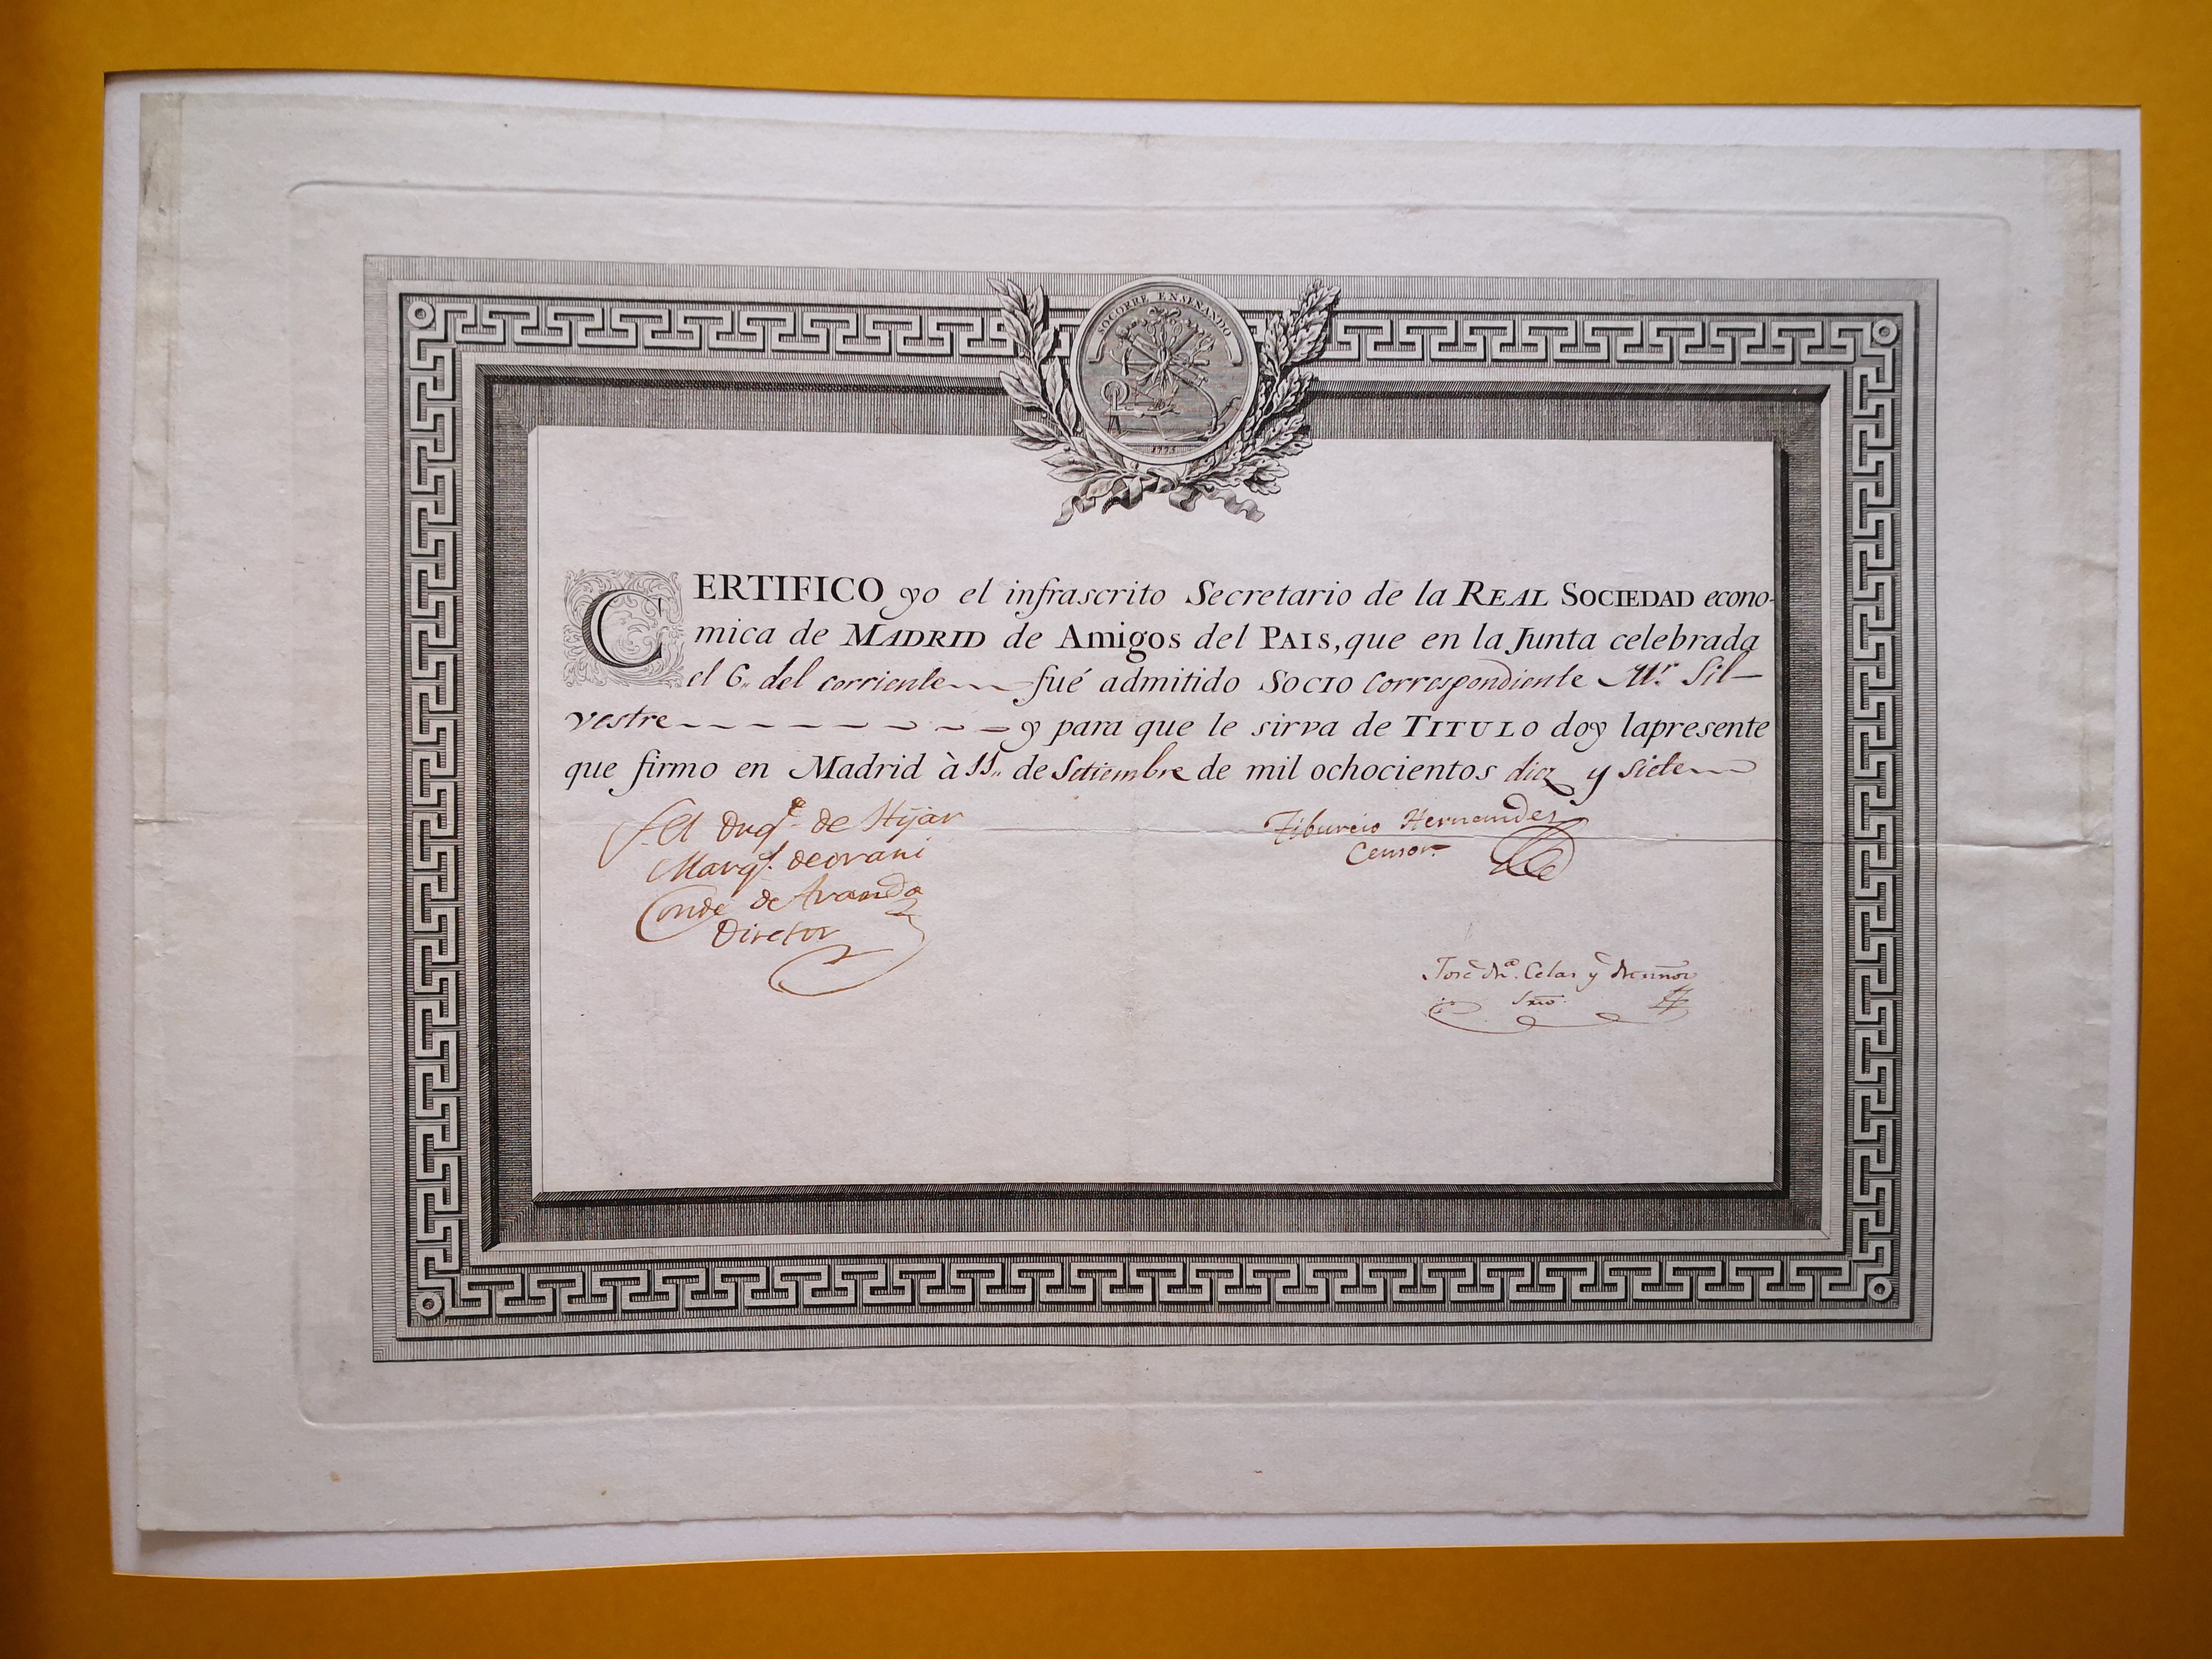 SOCORRE ENSEÑANDO
1775
CERTIFICO yo el infrascrito Secretario de la REAL SOCIEDAD econo-
mica de MADRID de Amigos del PAIS, que en la Junta celebrada
el 6.. del corriente fué admitido SOCIO Correspondiente Mr. Sil-
vestre y para que le sirva de TITULO doy lapresente
que firmo en Madrid à 11.. de Setiembre de mil ochocientos diez y siete
El Duqe. de Hijar
Marqs. de orani
Conde de Aranda
Diretor
Tiburcio Hernandez
Censor.
José Ma. Celas y Muñoz
Srio.